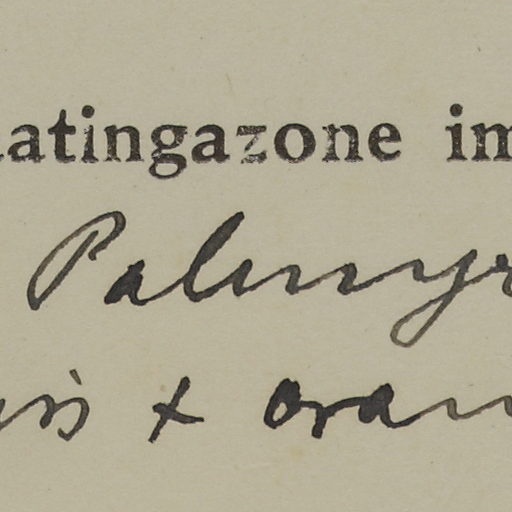 atingazone im
Palmyr
is + oran